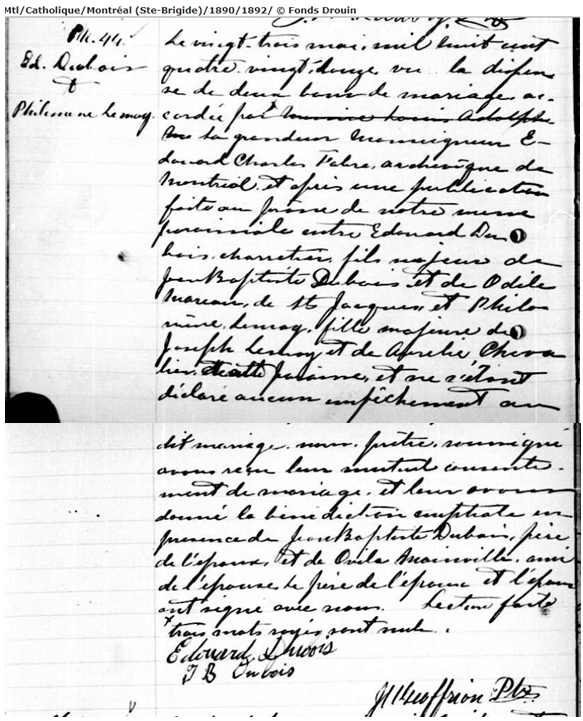 Mtl/Catholique/Montréal (Ste-Brigide)/1890/1892/ © Fonds Drouin
M. 44.
Ed. Dubois
&
Philomène Lemay.
Le vingt-trois mai, mil huit cent
quatre vingt-douze, vu la dispen
se de deux bans de mariage, ac-
cordée par Louis Adolphe
sa grandeur Monseigneur E-
douard Charles Fabre, archevêque de
Montréal, et après une publication
faite au prône de notre messe
paroissiale entre Edouard Du
bois, charretier, fils majeur de
Jean Baptiste Dubois et de Odile
de St Jacques, et Philo
mène Lemay, fille majeure de
Joseph Lemay et de Aurelie Cheva
lier, de cette paroisse, et ne s'étant
déclaré aucun empêchement au
dit mariage, nous, prêtre, soussigné
avons reçu leur mutuel consente-
ment de mariage, et leur avons
donné la bénédiction nuptiale en
présence de Jean Baptiste Dubois, père
de l'époux, et de Ovila Mainville, ami
de l'épouse. Le père de l'époux et l'époux
ont signé avec nous. Lecture faite
x trois mots rayés sont nuls.
Edouard Dubois
J B Dubois
Geoffrion Ptre